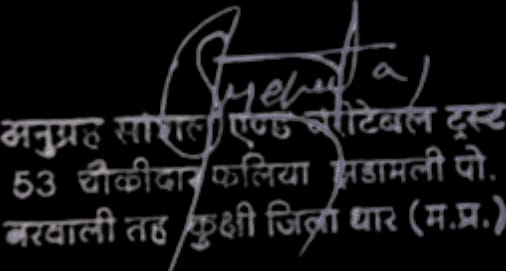 अनुग्रह सोशल एण्ड चेरीटेबल ट्रस्ट
53 चौकीदार फलिया झडामली पो.
बरवाली तह कुक्षी जिला धार (म.प्र.)